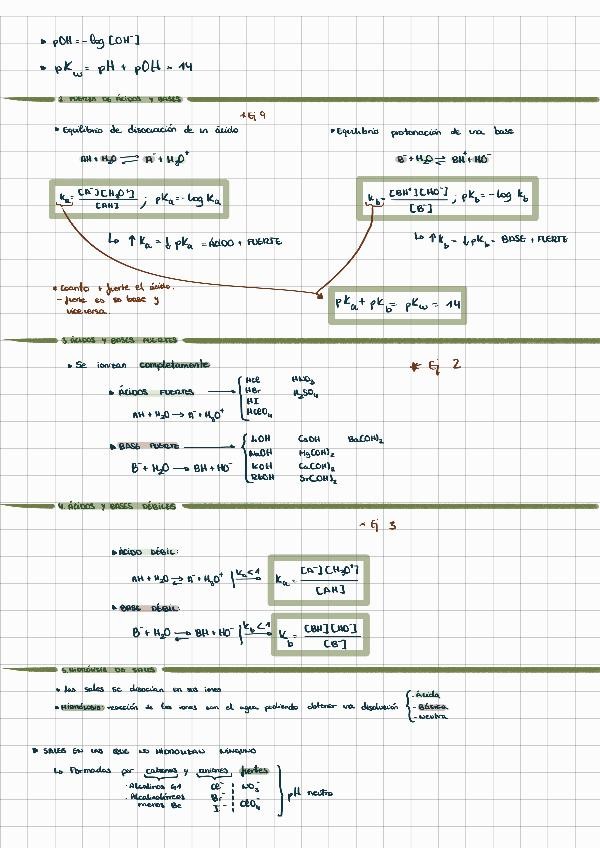 ▸ pOH = -log [OH⁻]
▸ pKw = pH + pOH = 14
2. FUERZA DE ÁCIDOS Y BASES
* Ej 1
▸ Equilibrio de disociación de un ácido
▸ Equilibrio protonación de una base
AH + H₂O ⇌ A⁻ + H₃O⁺
B⁻ + H₂O ⇌ BH⁺ + HO⁻
Ka = [A⁻][H₃O⁺] / [AH] ; pKa = -log Ka
Kb = [BH⁺][HO⁻] / [B⁻] ; pKb = -log Kb
↳ ↑Ka = ↓pKa = ÁCIDO + FUERTE
↳ ↑Kb = ↓pKb = BASE + FUERTE
▸ Cuanto + fuerte el ácido.
- fuerte es su base y
viceversa.
pKa + pKb = pKw = 14
3. ÁCIDOS Y BASES FUERTES
▸ Se ionizan completamente
* Ej 2
▸ ÁCIDOS FUERTES → { HCl HNO₃
HBr H₂SO₄
HI
HClO₄
AH + H₂O → A⁻ + H₃O⁺
▸ BASE FUERTE → { LiOH CsOH Ba(OH)₂
NaOH Mg(OH)₂
KOH Ca(OH)₂
RbOH Sr(OH)₂
B⁻ + H₂O → BH + HO⁻
4. ÁCIDOS Y BASES DÉBILES
* Ej 3
▸ ÁCIDO DÉBIL:
AH + H₂O ⇌ A⁻ + H₃O⁺ | Ka < 1 → Ka = [A⁻][H₃O⁺] / [AH]
▸ BASE DÉBIL:
B⁻ + H₂O ⇌ BH + HO⁻ | Kb < 1 → Kb = [BH][HO⁻] / [B⁻]
5. HIDRÓLISIS DE SALES
▸ Las sales se disocian en sus iones
▸ Hidrólisis: reacción de los iones con el agua, pudiendo obtener una disolución { - Ácida
- Básica
- Neutra
▸ SALES EN LAS QUE NO HIDROLIZAN NINGUNO
↳ Formadas por cationes y aniones fuertes
· Alcalinos G1 Cl⁻ NO₃⁻
· Alcalinotérreos Br⁻ ClO₄⁻
menos Be I⁻
} pH neutro